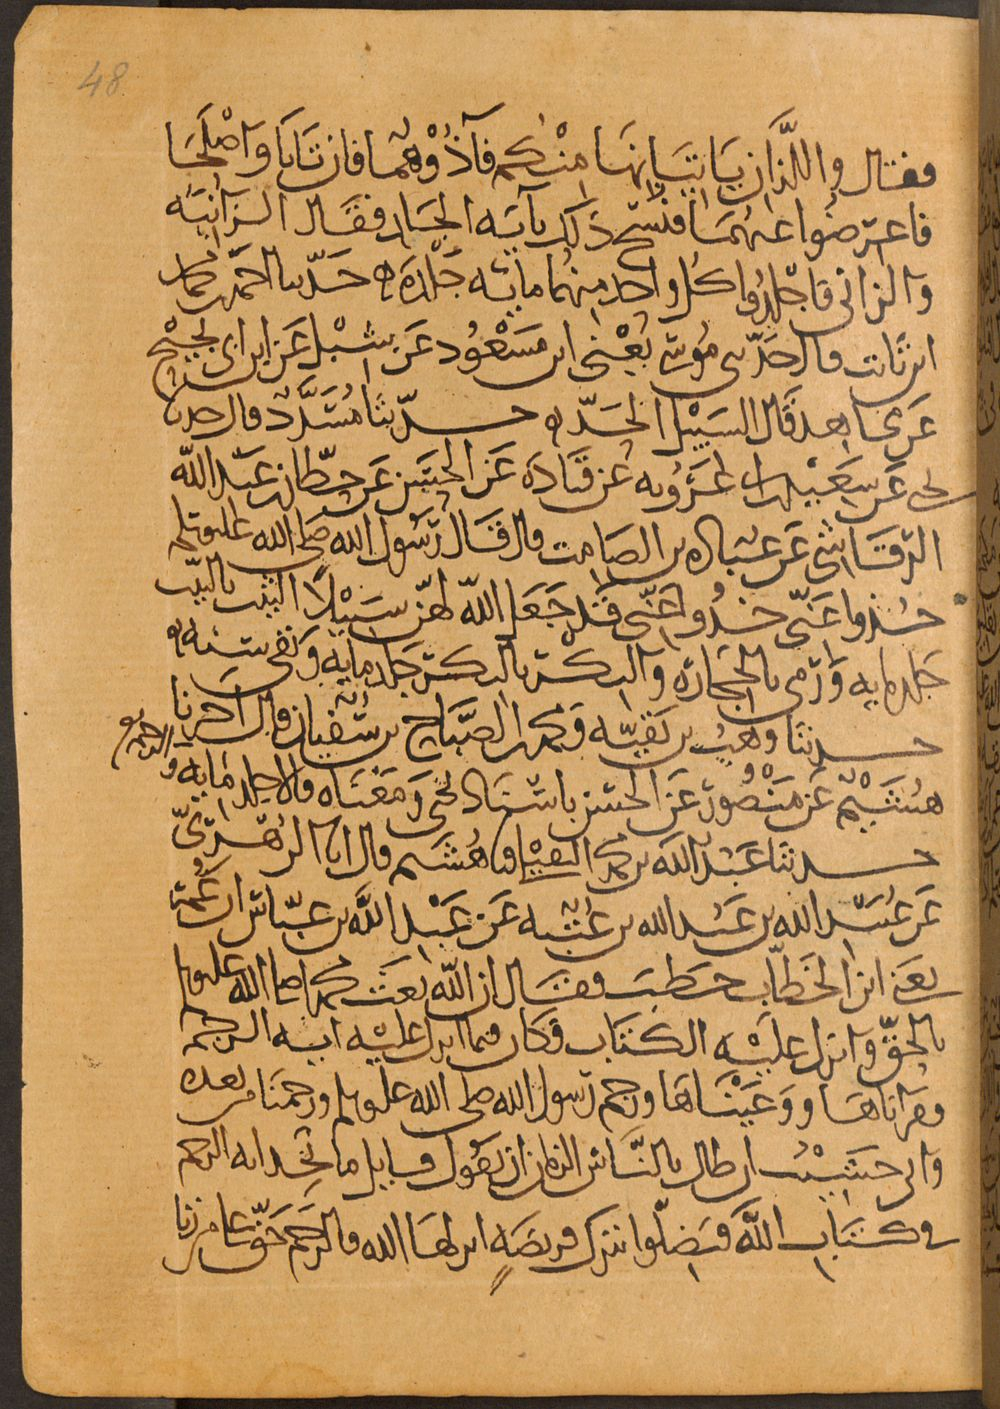 48
فقال واللذان ياتيانها منكم فآذوهما فان تابا واصلحا
فاعرضوا عنهما فنسخ ذلك بآية الجلد فقال الزانية
والزاني فاجلدوا كل واحد منهما ماية جلدة ه حدثنا احمد بن محمد
ابن ثابت قال حدثني موسى يعني ابن مسعود عن شبل عن ابن ابي نجيح
عن مجاهد قال السبيل الحد ه حدثنا مسدد قال حدثنا
يحيى عن سعيد بن ابي عروبه عن قتادة عن الحسن عن حطان بن عبد الله
الرقاشي عن عبادة بن الصامت قال قال رسول الله صلى الله عليه وسلم
خذوا عني خذوا عني قد جعل الله لهن سبيلا الثيب بالثيب
جلد مايه ورمي بالحجارة والبكر بالبكر جلد مايه ونفي سنه ه
حدثنا وهب بن بقيه ومحمد بن الصباح بن سفيان قال اخبرنا
هشيم عن منصور عن الحسن باسناد يحيى ومعناه قالا جلد مايه والرجم
حدثنا عبد الله بن محمد النفيلي نا هشيم قال انا الزهري
عن عبيد الله بن عبد الله بن عتبه عن عبد الله بن عباس ان عمر
يعني ابن الخطاب خطب فقال ان الله بعث محمدا صلى الله عليه وسلم
بالحق وانزل عليه الكتاب فكان فيما انزل عليه اية الرجم
فقراناها ووعيناها ورجم رسول الله صلى الله عليه وسلم ورجمنا من بعده
واني خشيت ان طال بالناس الزمان ان يقول قايل ما نجد اية الرجم
في كتاب الله فيضلوا بترك فريضة انزلها الله فالرجم حق على من زنا